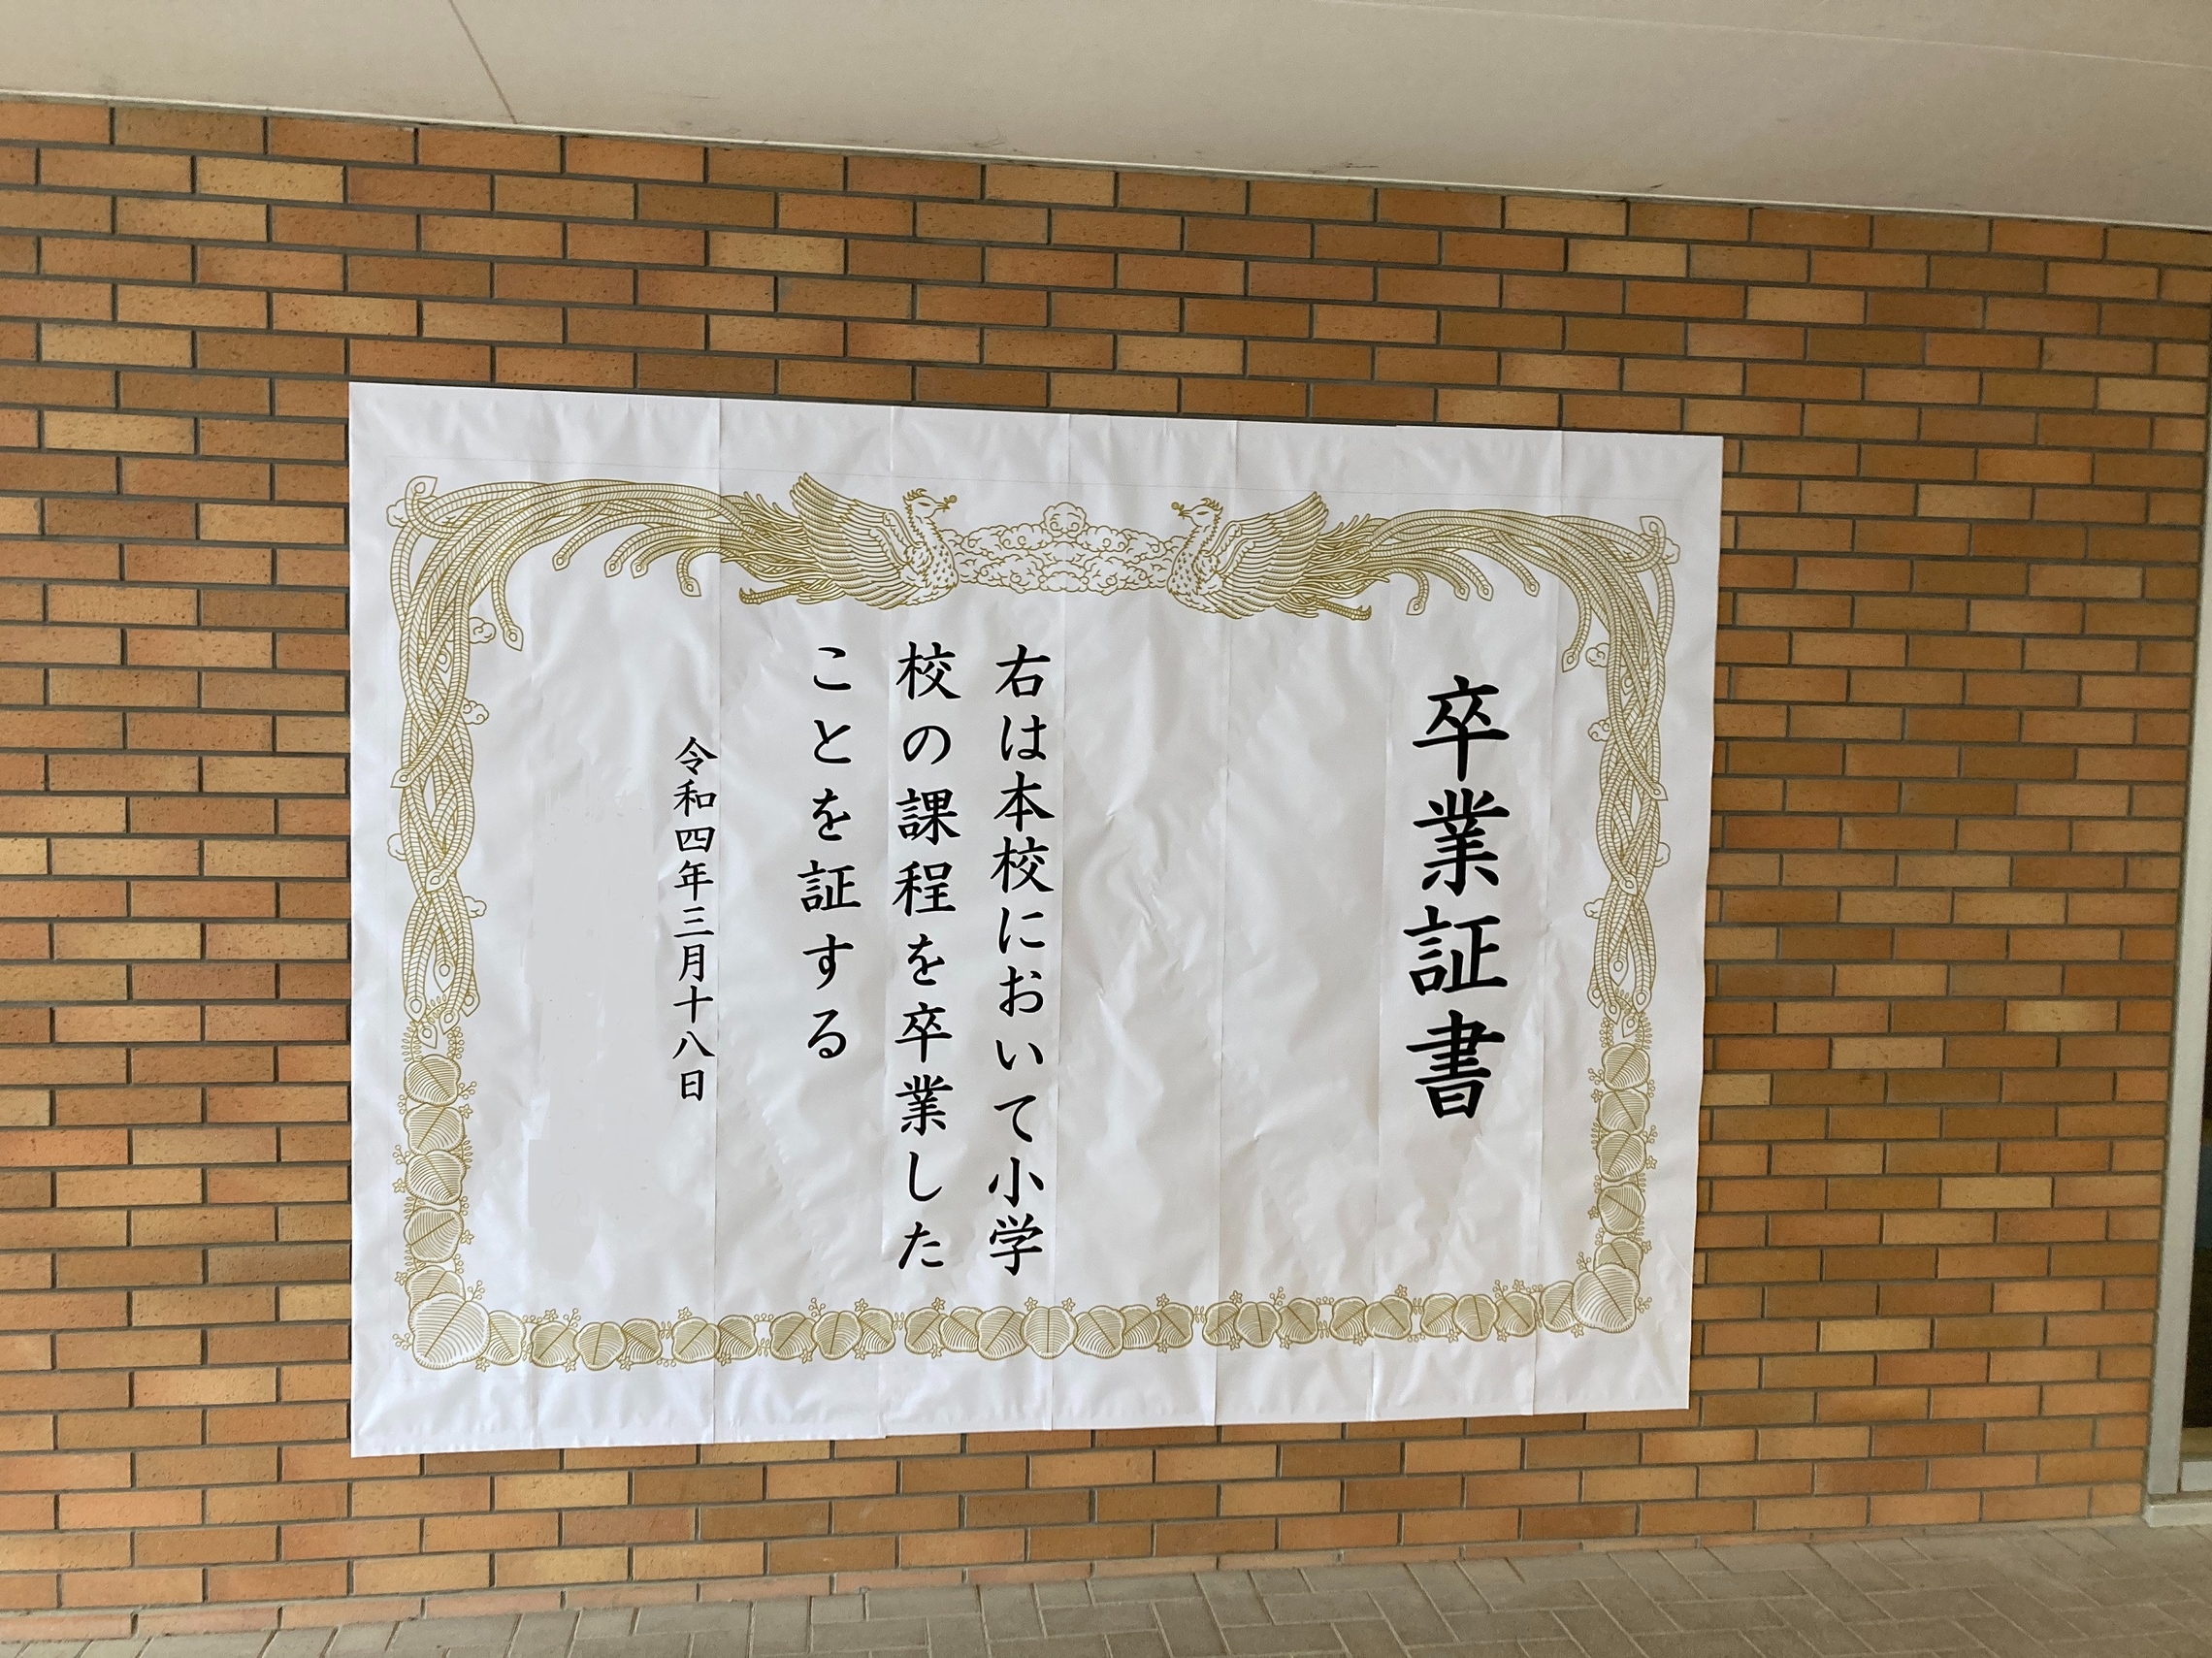 卒業証書
右は本校において小学
校の課程を卒業した
ことを証する
令和四年三月十八日